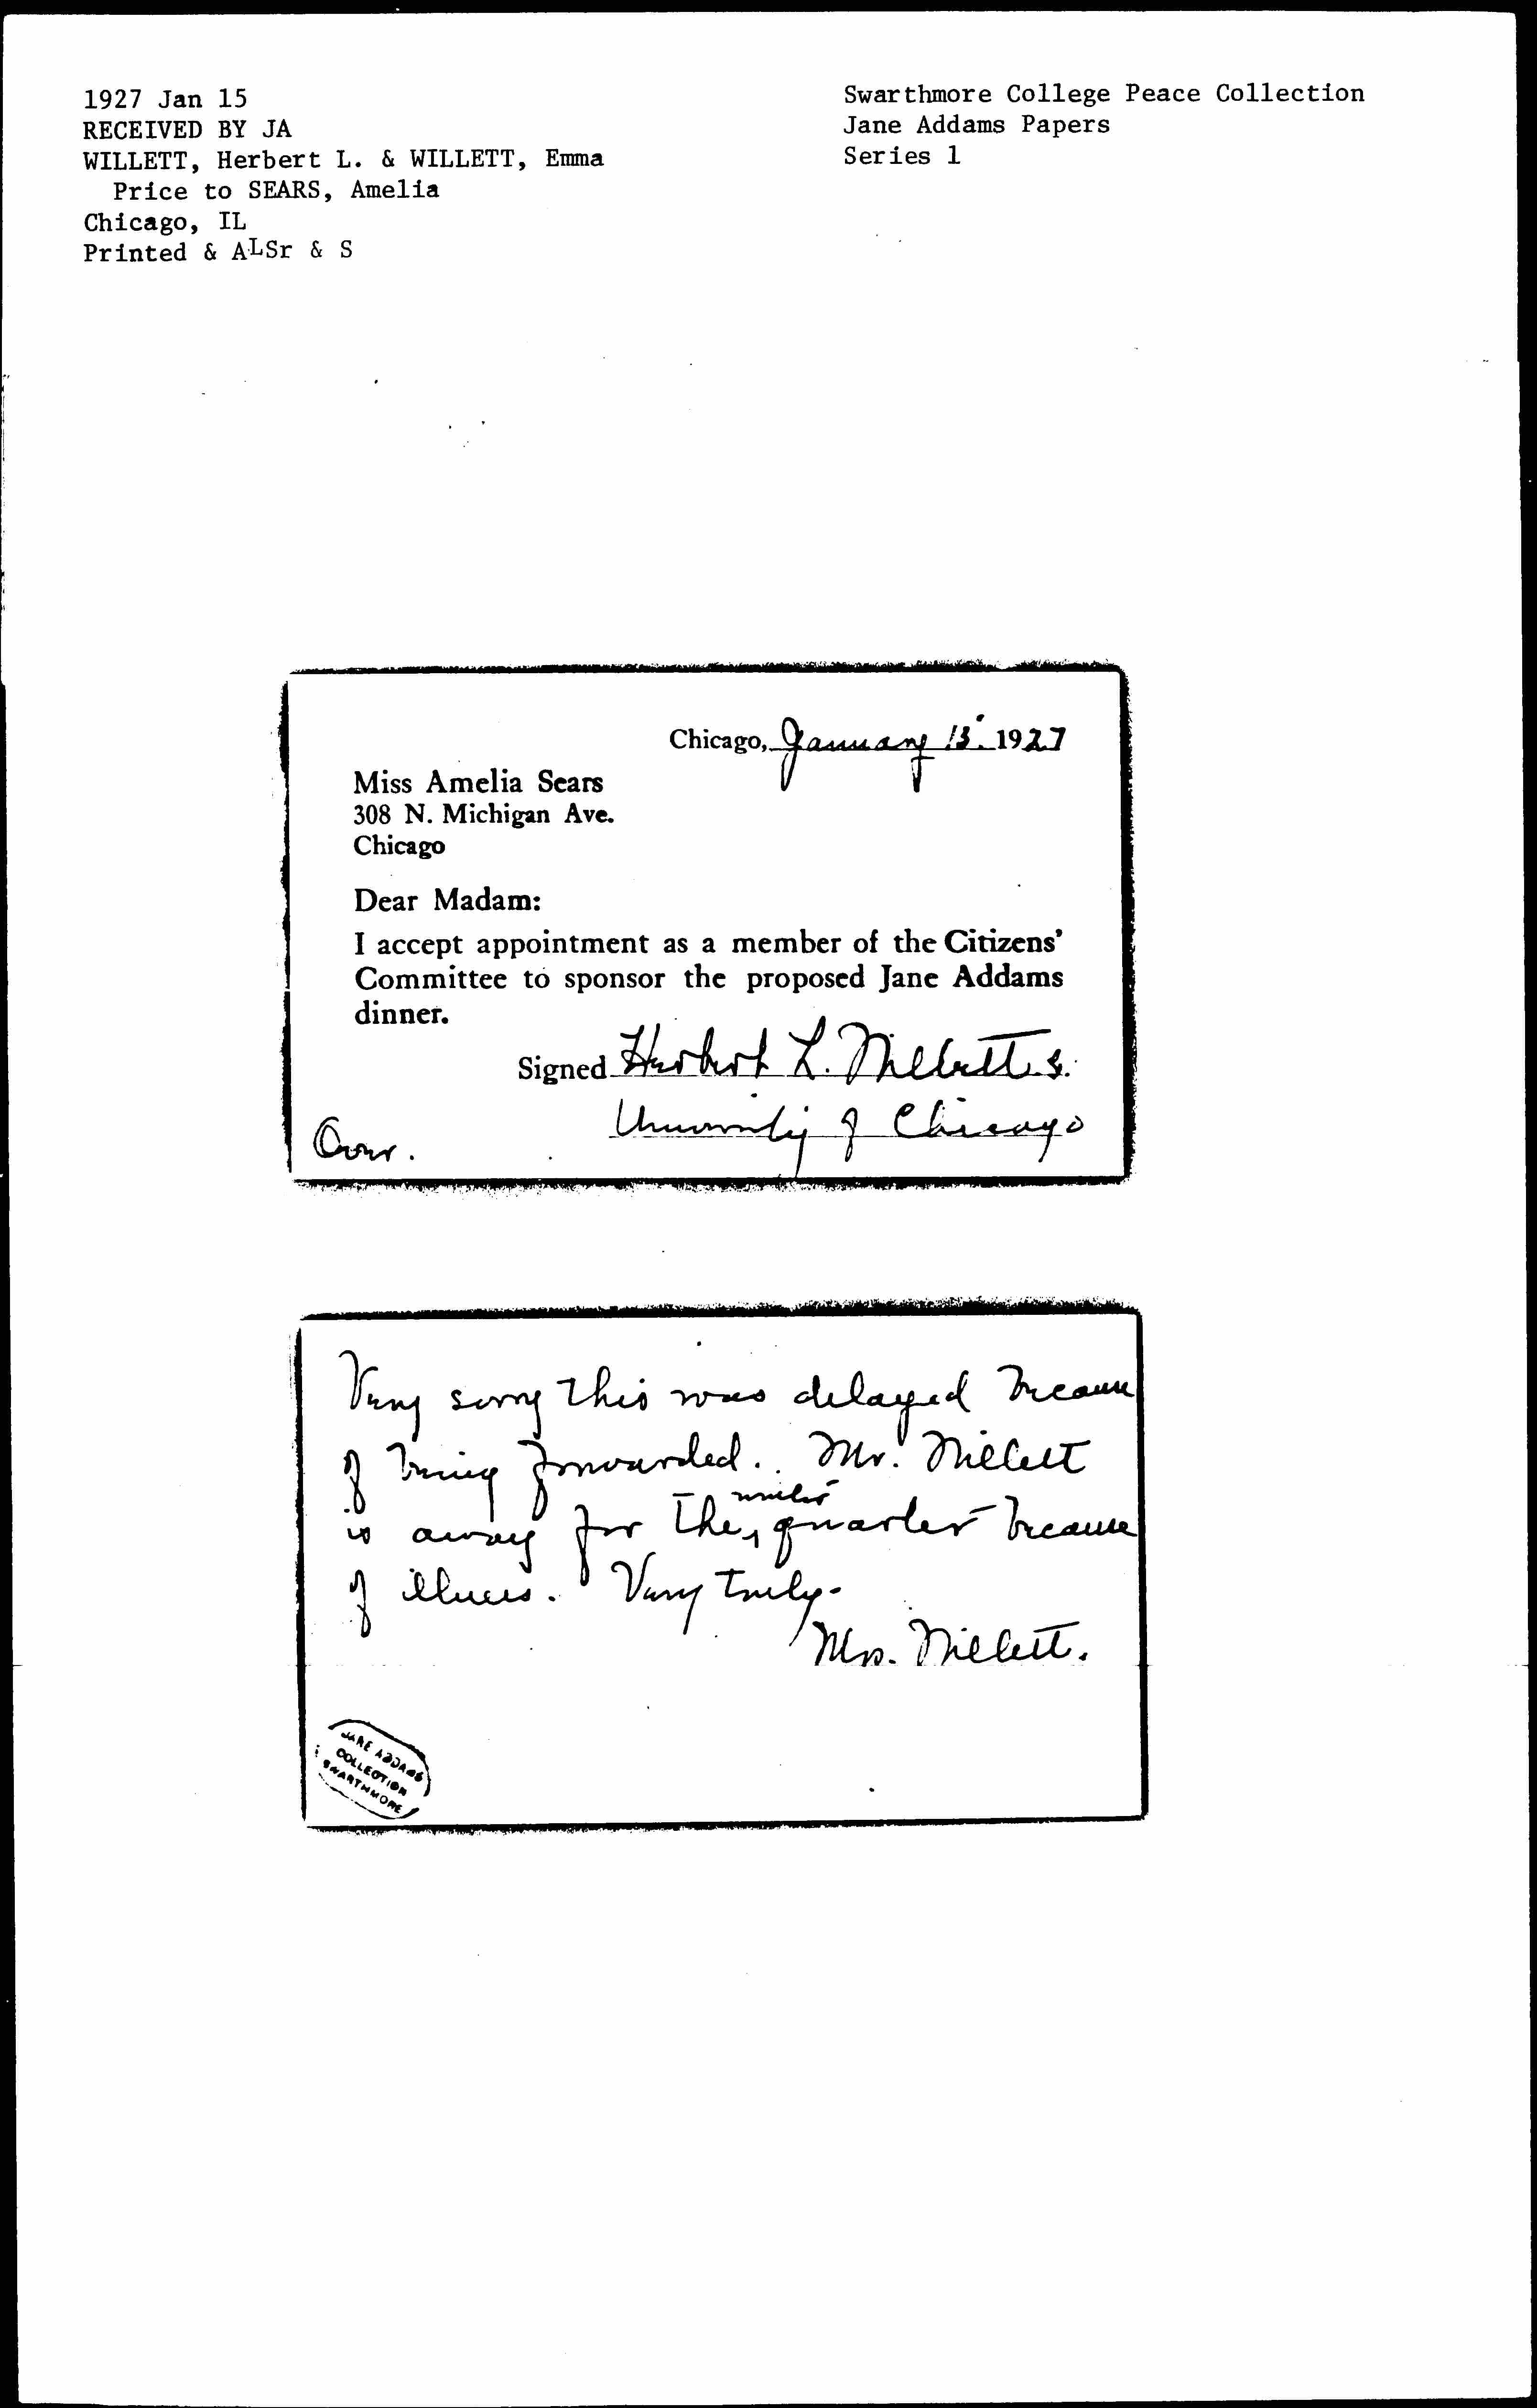 1927 Jan 15
RECEIVED BY JA
WILLETT, Herbert L. & WILLETT, Emma
Price to SEARS, Amelia
Chicago, IL
Printed & ALSr & S
Swarthmore College Peace Collection
Jane Addams Papers
Series 1
Chicago, January 15. 1927
Miss Amelia Sears
308 N. Michigan Ave.
Chicago
Dear Madam:
I accept appointment as a member of the Citizens'
Committee to sponsor the proposed Jane Addams
dinner.
Signed Herbert L. Willett
University of Chicago
Over.
Very sorry this was delayed because
of being forwarded. Mr. Willett
is away for the winter quarter because
of illness. Very truly.
Mrs. Willett.
JANE ADDAMS
COLLECTION
SWARTHMORE